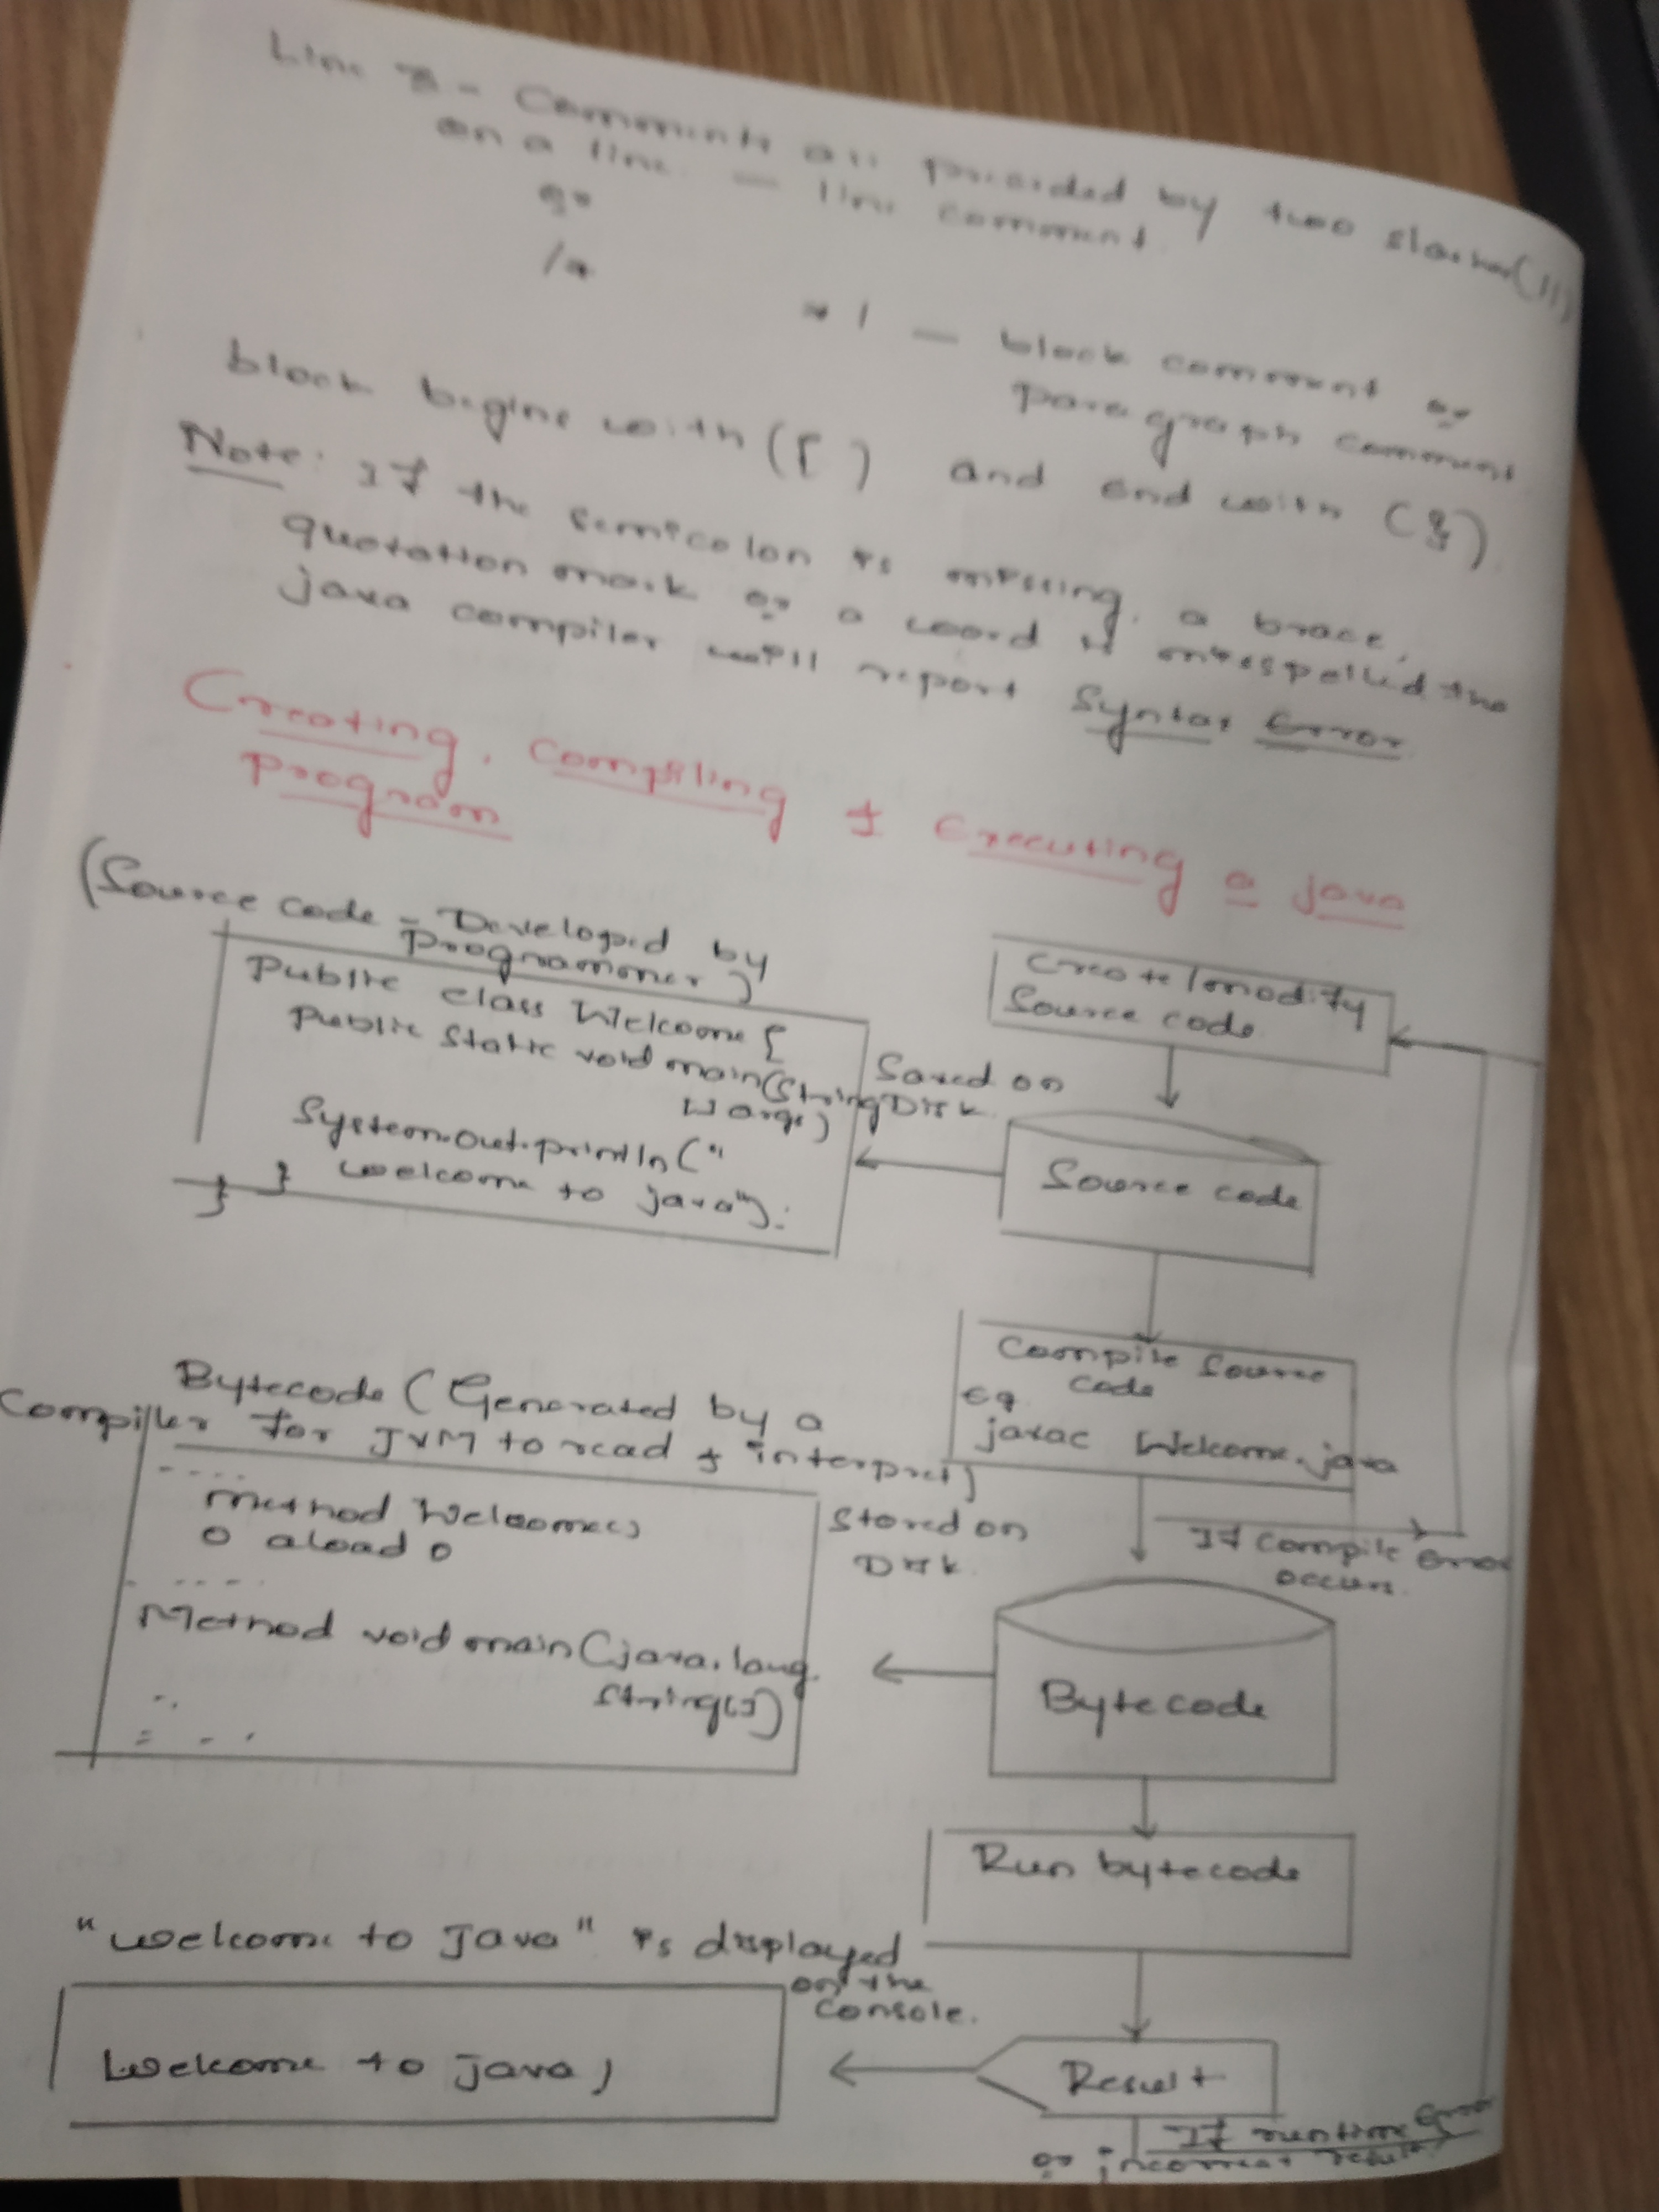 Line 3 - Comments are preceided by two slashes(//)
on a line. — line comment.
or
/*
*/ — block comment or
paragraph comment
block begins with ({) and end with (}).
Note: If the semicolon is missing, a brace,
quotation mark or a word is misspelled the
java compiler will report Syntax Error
Creating, Compiling & Executing a java
Program
(Source code - Developed by
Programmer)
Public class Welcome {
Public static void main(String
[] args)
System.out.println("
welcome to java");
}
}
Create/modify
Source code
Saved on
Disk
Source code
Compile Source
code
Eg
javac Welcome.java
If compile error
occurs.
Bytecode (Generated by a
Compiler for JVM to read & interpret)
....
method Welcome()
0 aload 0
.....
Method void main(java.lang.
String[])
Stored on
Disk
Bytecode
Run bytecode
"welcome to Java" is displayed
on the
console.
Welcome to java)
Result
If runtime Error
or incorrect result